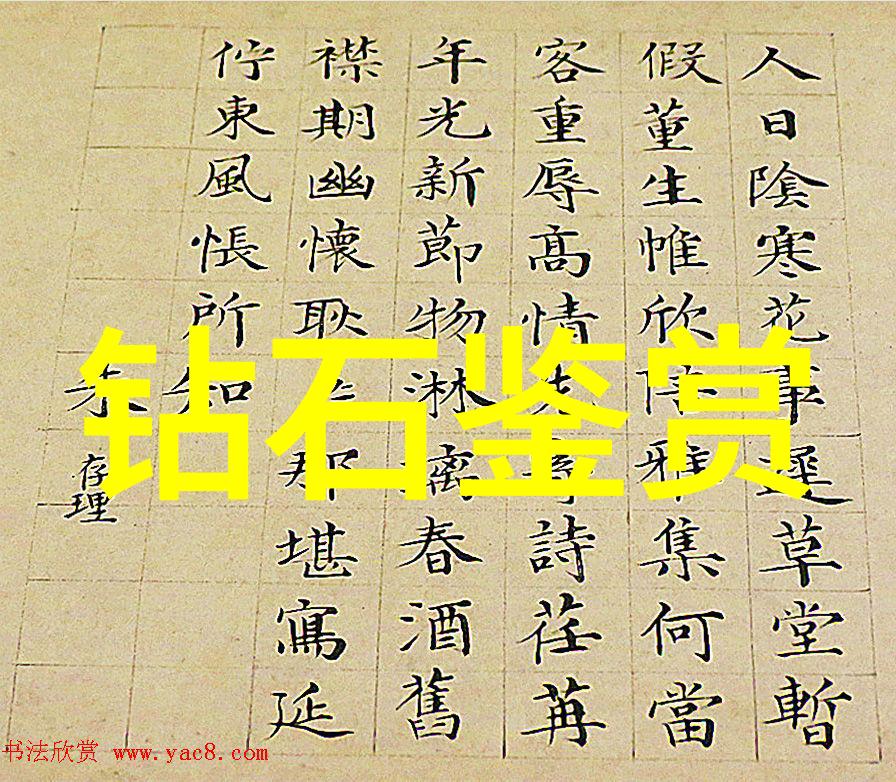 人日陰寒花事遲草堂暫
假董生帷欣陪雅集何當
客重辱高情寄詩荏苒
年光新節物淋漓春酒舊
襟期幽懷耿那堪寫延
佇東風悵所知
存理
钻石鉴赏
书法欣赏 www.yac8.com